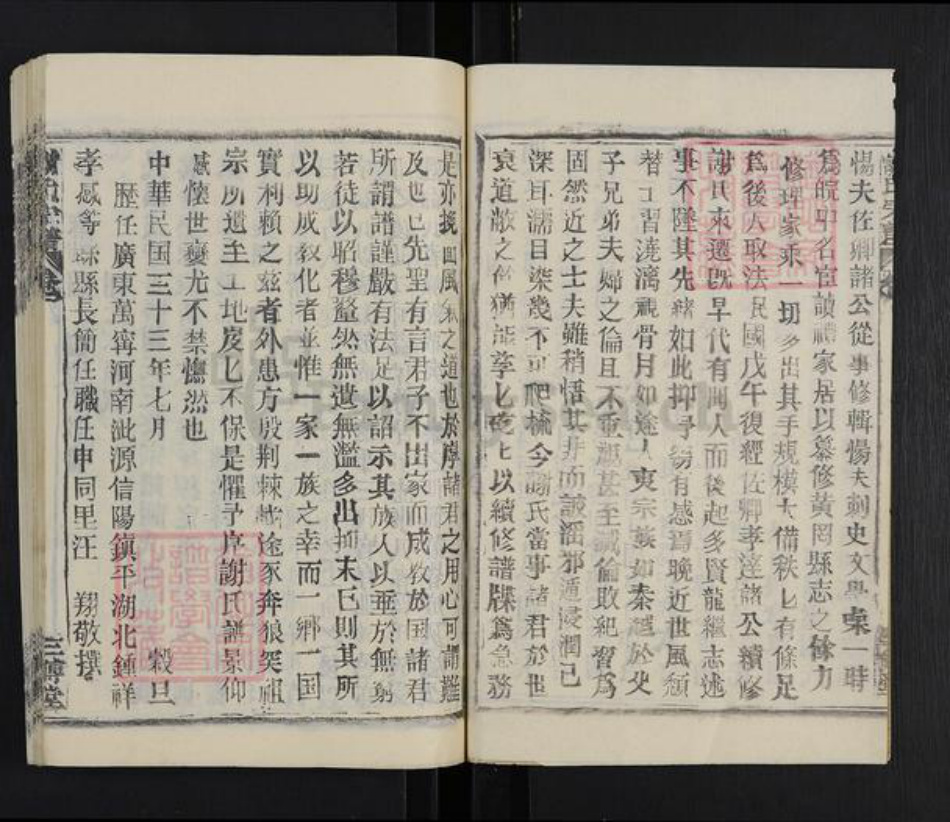 惕夫佐卿諸公從事修輯惕夫刺史文學桌一時
爲皖中名宦讀禮家居以纂修黃岡縣志之餘力
修理家乘一切多出其手規模大備秩匕有條足
爲後人取法民國戊午復經佐卿孝逹諸公續修
謝氏來遷既早代有聞人而後起多賢龍繼志述
事不墜其先緒如此抑予竊有感焉晚近世風頹
替工習澆漓視骨月如途人夷宗族如秦越於父
子兄弟夫婦之倫且不重視甚至滅倫敗紀習爲
固然近之士夫雖稍悟其非而詖淫邪遁浸潤已
深耳濡目染幾不可爬梳今謝氏當事諸君於世
衰道敝之
猶能孳匕矻匕以續修譜牒爲急務
是亦挽
風
之道也於序諸君之用心可謂難
及也已先聖有言君子不出家而成教於国諸君
所謂譜謹嚴有法足以詔示其族人以垂於無窮
若徒以昭穆
然無遺無濫多出
末已則其所
以助成敎化者並惟一家一族之幸而一鄉一国
實利賴之兹者外患方殷荆棘
途豕奔狼突祖
宗所遺
土地岌匕不保是懼予序謝氏譜景仰
感懷世變尤不禁憮然也
中華民国三十三年七月 穀旦
歷任廣東萬寗河南泚源信陽鎮平湖北鍾祥
孝感等縣縣長簡任職任申同里汪 翔敬撰
三
堂